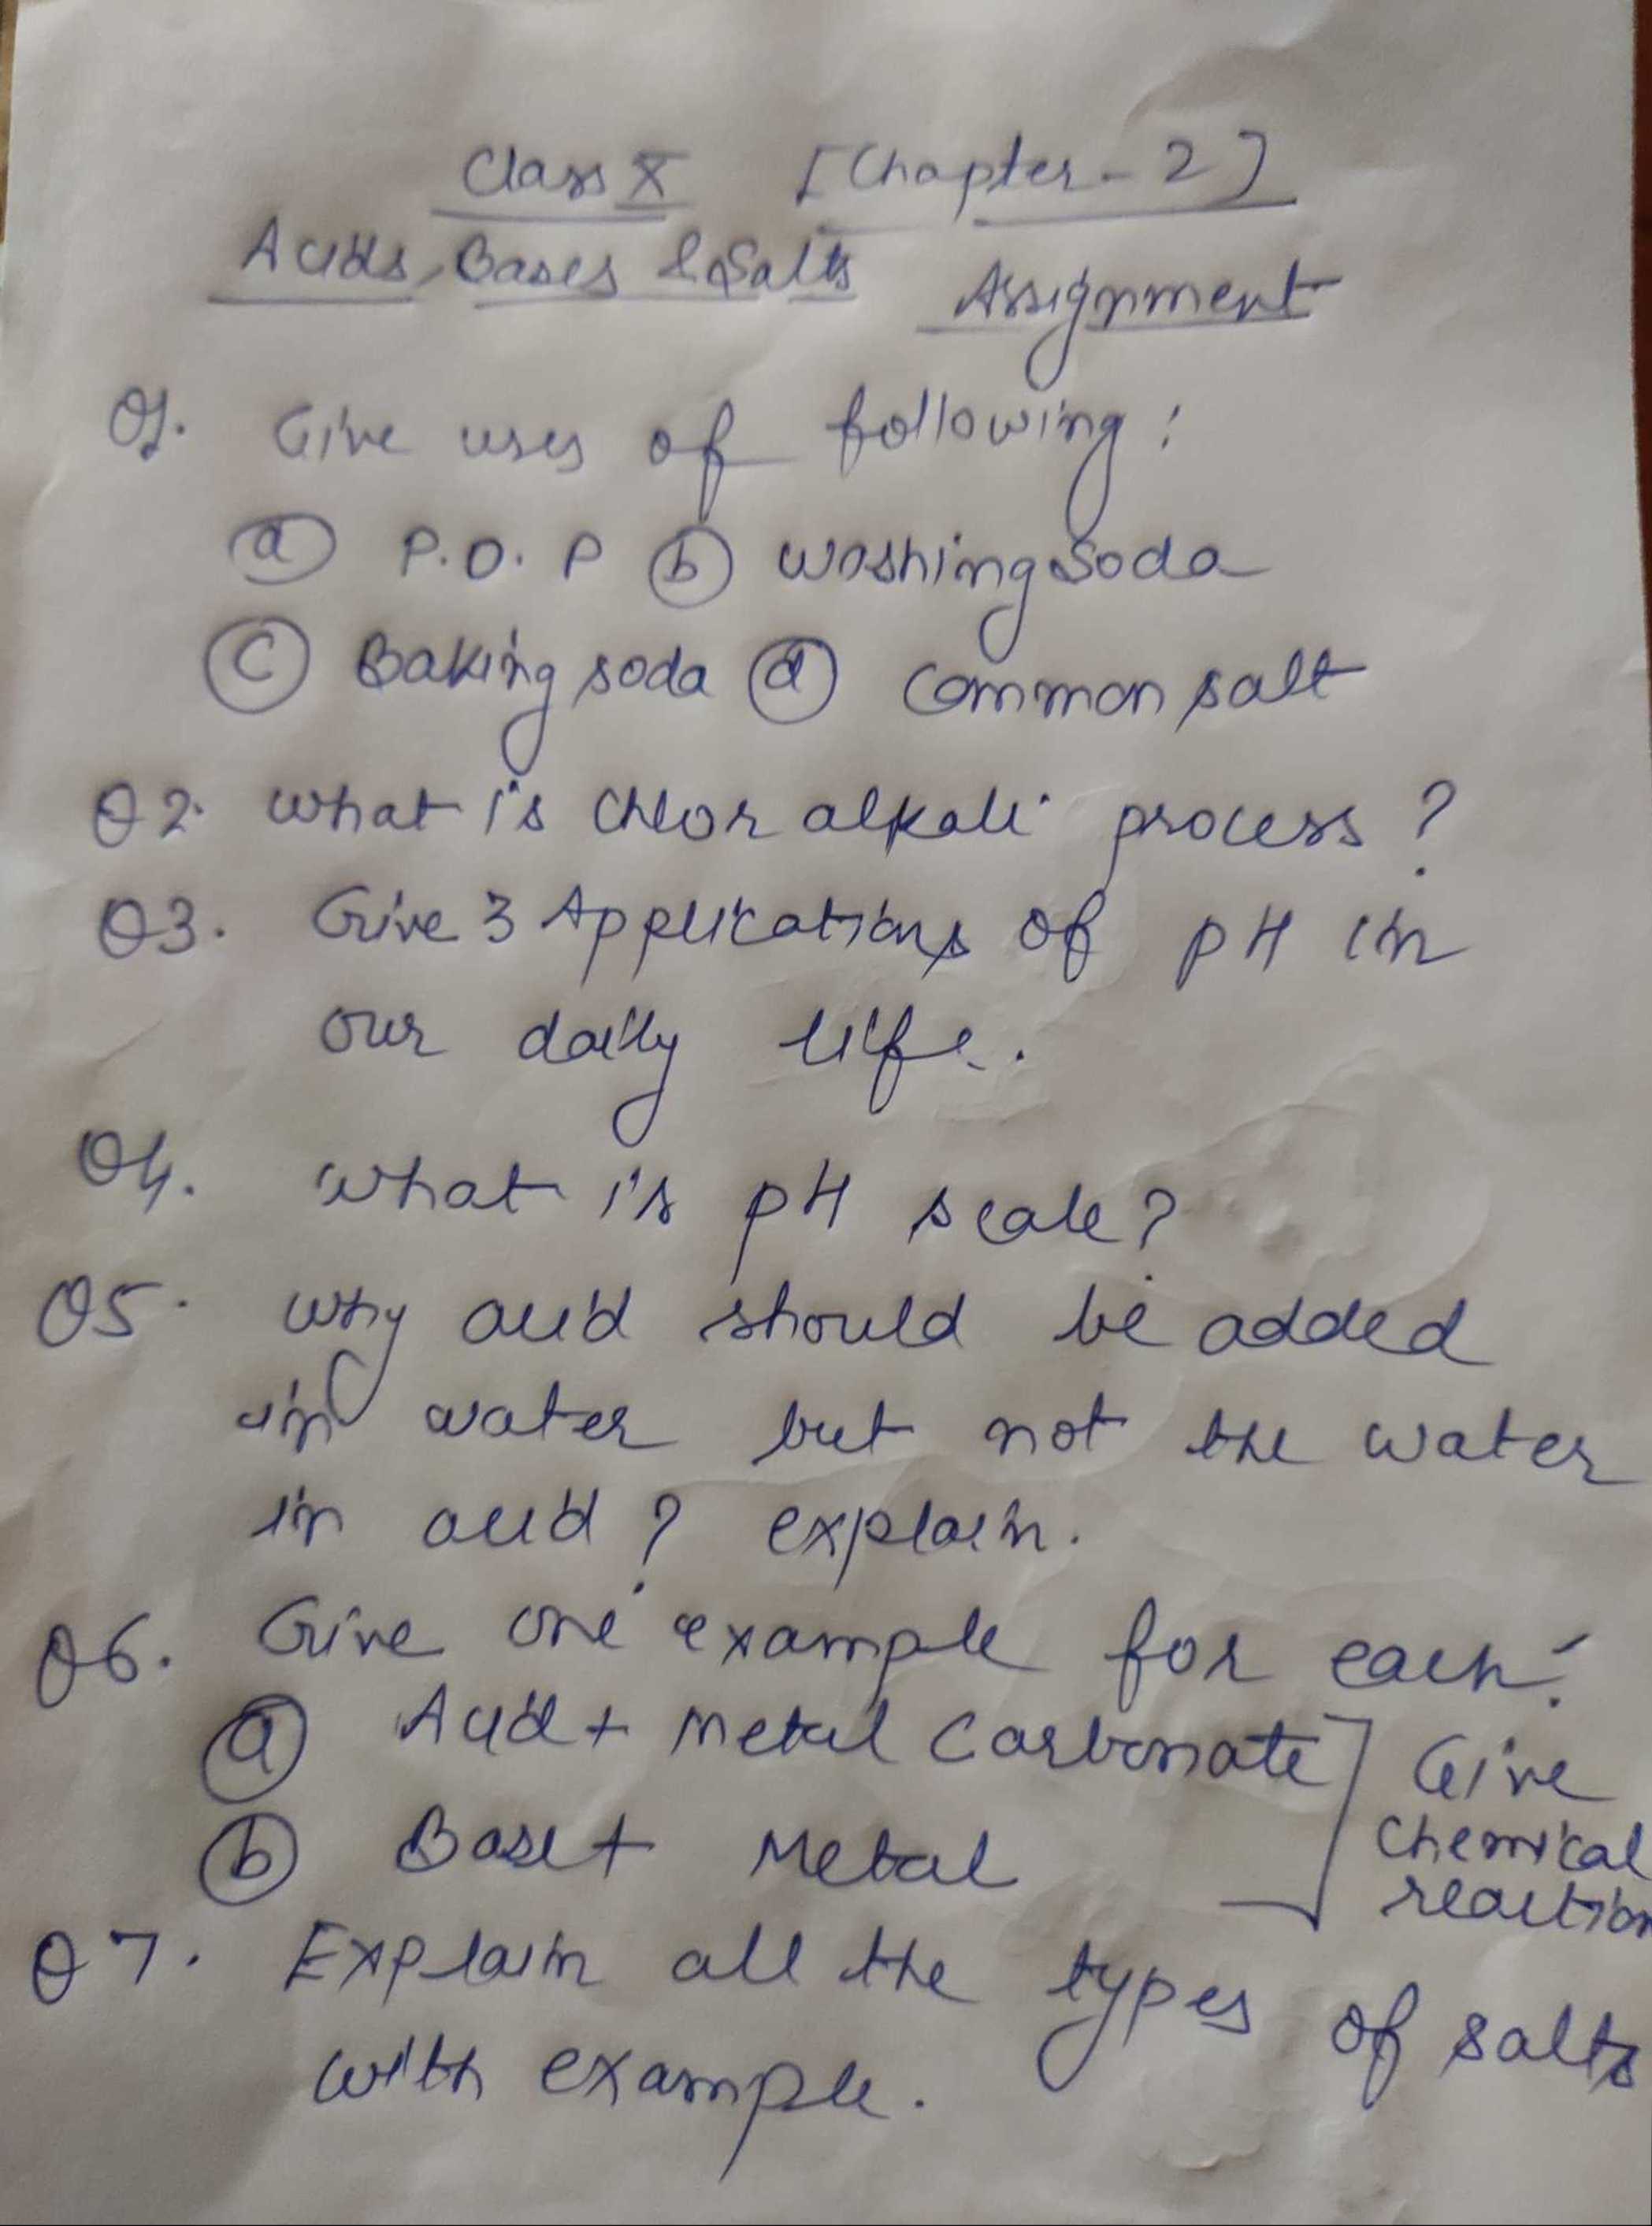 Class X [Chapter-2]
Acids, Bases & Salts Assignment
Q1. Give uses of following:
(a) P.O.P (b) Washing Soda
(c) Baking soda (d) Common salt
Q2. What is Chlor alkali process?
Q3. Give 3 Applications of pH in
our daily life.
Q4. What is pH scale?
Q5. Why acid should be added
in water but not the water
in acid? explain.
Q6. Give one example for each:
(a) Acid + Metal Carbonate ] Give
(b) Base + Metal Chemical
reaction
Q7. Explain all the types of salts
with example.